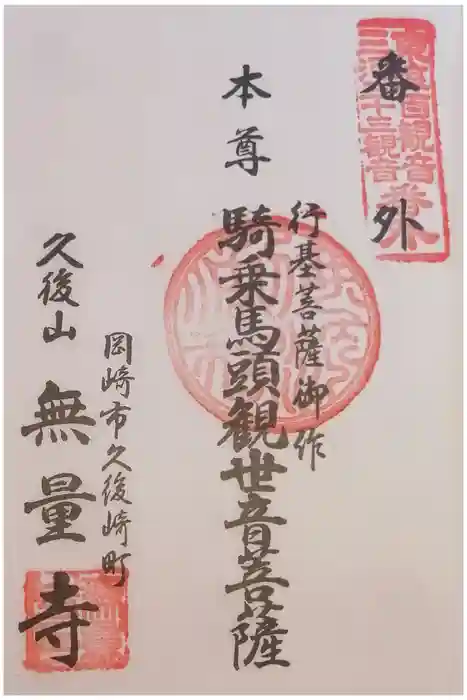 番外
三河三十三観音
本尊
行基菩薩御作
騎乗馬頭観世音菩薩
岡崎市久後崎町
久後山
無量寺